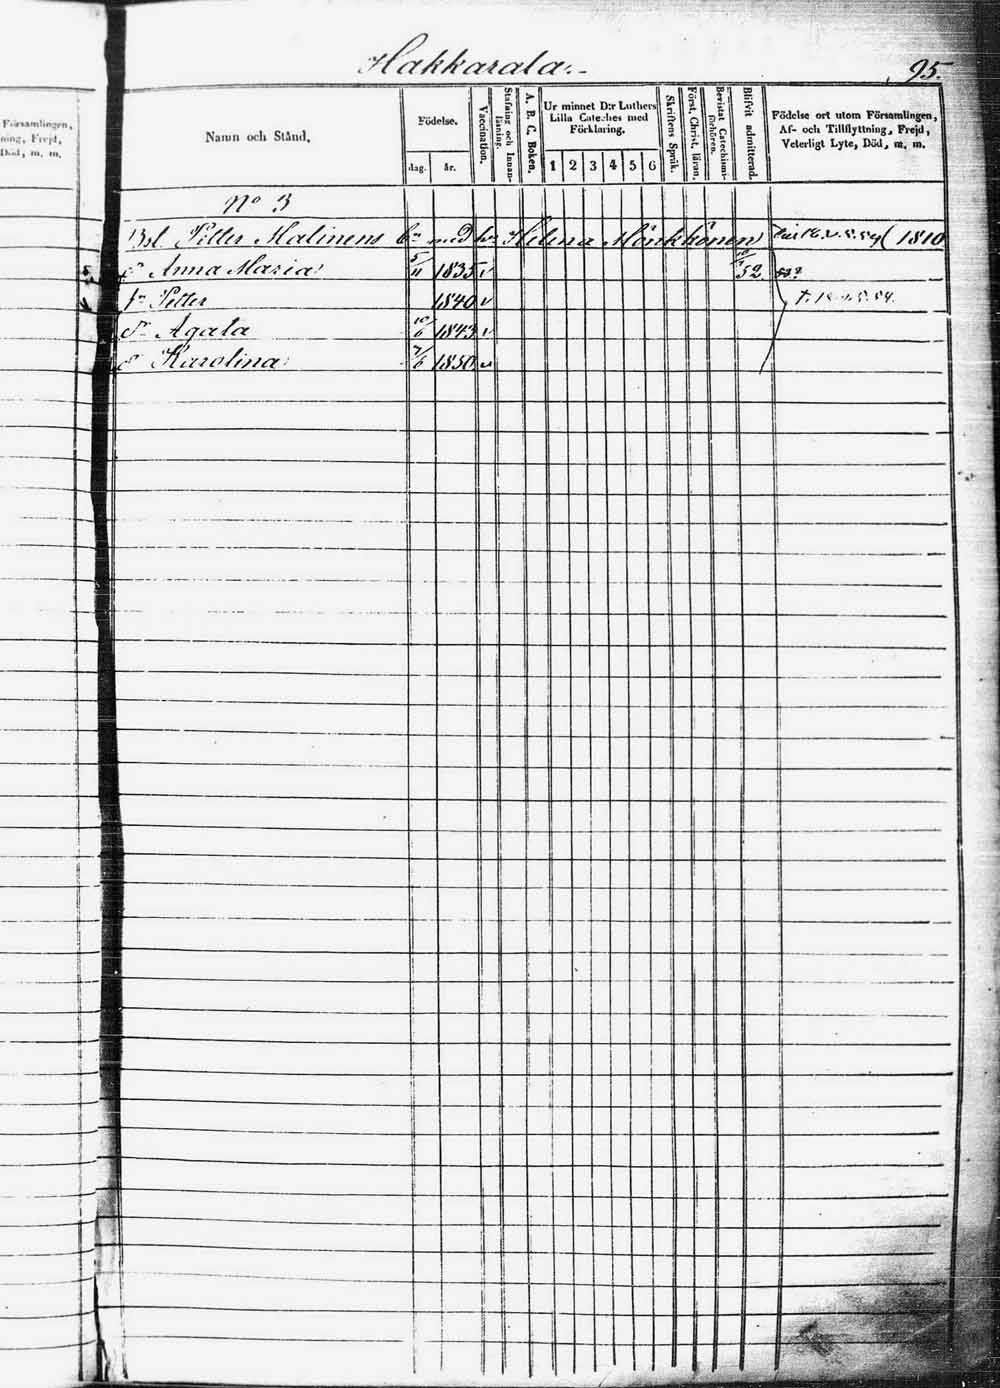 Hakkarala. 95.
Församlingen,
ning, Frejd,
Död, m. m.
Namn och Stånd.
Födelse.
dag. år.
Vaccination.
Stafning och Innan-
läsning.
A. B. C. Boken.
Ur minnet D:r Luthers
Lilla Cateches med
Förklaring.
1 2 3 4 5 6
Skriftens Språk.
Först. Christ. läran.
Bevistat Catechismi-
förhören.
Blifvit admitterad.
Födelse ort utom Församlingen,
Af- och Tillflyttning, Frejd,
Veterligt Lyte, Död, m. m.
No 3
Bsl. Petter Malinens med Helena Mönkkönen 1810
Anna Maria 5/11 1835 v 52
Petter 1840 v
Agata 10/6 1843 v
Karolina 7/6 1850 v